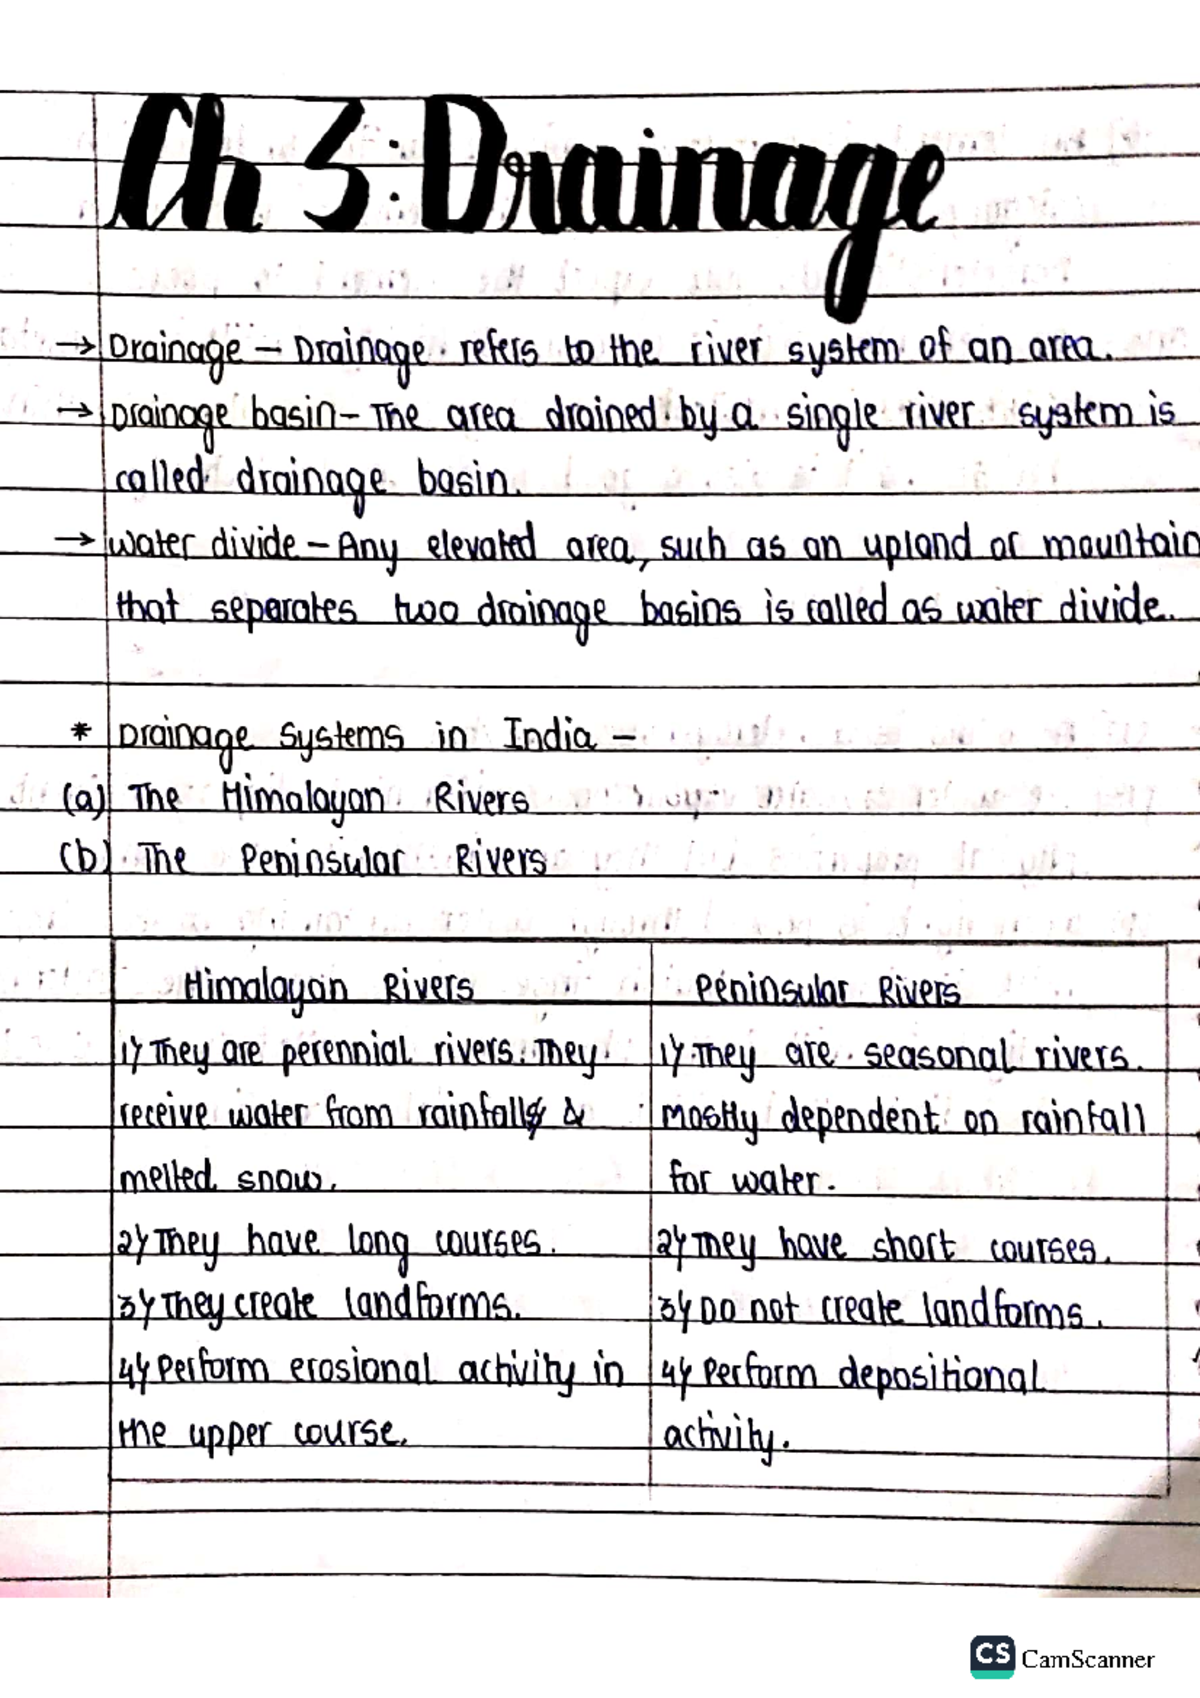 Ch 3: Drainage
→ Drainage – Drainage refers to the river system of an area.
→ Drainage basin – The area drained by a single river system is
called drainage basin.
→ Water divide – Any elevated area, such as an upland or mountain
that separates two drainage basins is called as water divide.
* Drainage Systems in India –
(a) The Himalayan Rivers
(b) The Peninsular Rivers
Himalayan Rivers
1) They are perennial rivers. They
receive water from rainfall &
melted snow.
2) They have long courses.
3) They create landforms.
4) Perform erosional activity in
the upper course.
Peninsular Rivers
1) They are seasonal rivers.
Mostly dependent on rainfall
for water.
2) They have short courses.
3) Do not create landforms.
4) Perform depositional
activity.
CS CamScanner